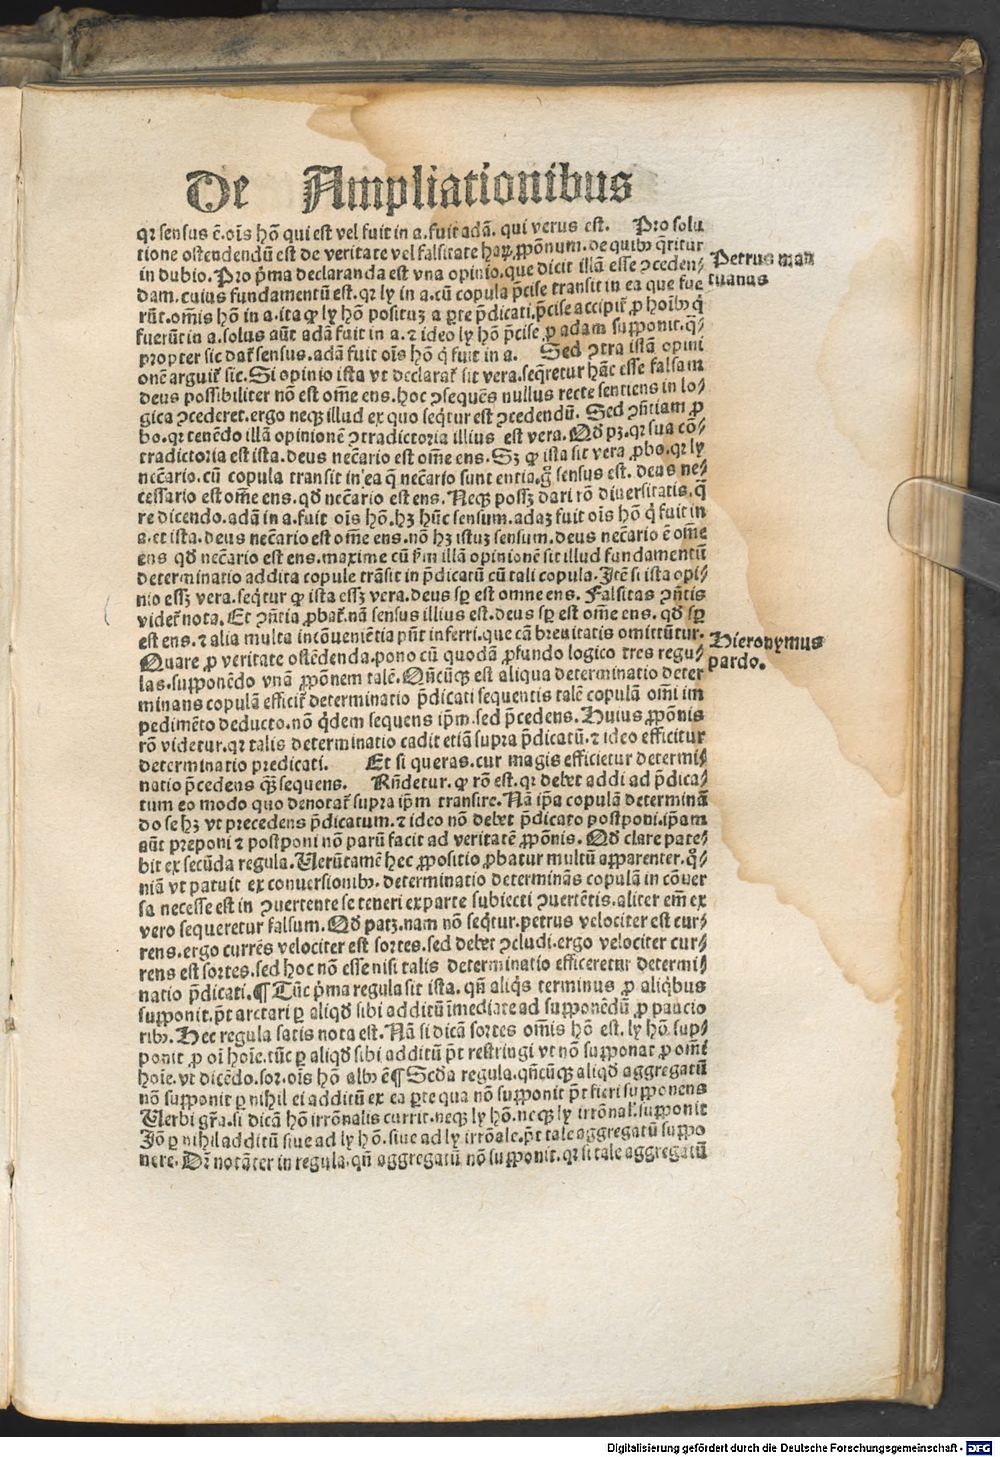 De Ampliationibus
qꝛ sensus ē. oīs hō qui est vel fuit in a. fuit adā. qui verus est. Pro solu
tione ostendendū est de veritate vel falsitate haꝝ ꝓpōnum. de quibꝰ q̄ritur
in dubio. Pro p̄ma declaranda est vna opinio. que dicit illā esse ꝯceden⸗
dam. cuius fundamentū est. qꝛ ly in a. cū copula p̄cise transit in ea que fue
rūt. om̄is hō in a. ita ꝙ ly hō posituꝫ a ꝑte p̄dicati. p̄cise accipit̄ ꝓ hoībꝰ q̄
fuerūt in a. solus aūt adā fuit in a. ⁊ ideo ly hō p̄cise ꝓ adam supponit. q̄⸗
propter sic dat̄ sensus. adā fuit oīs hō q̄ fuit in a. Sed ꝯtra istā opini
onē arguit̄ sic. Si opinio ista vt declarat̄ sit vera. seq̄retur hāc esse falsam
deus possibiliter nō est om̄e ens. hoc ꝯsequēs nullus recte sentiens in lo⸗
gica ꝯcederet. ergo neqꝫ illud ex quo seq̄tur est ꝯcedendū. Sed ꝯn̄tiam ꝓ
bo. qꝛ tenēdo illā opinionē ꝯtradictoria illius est vera. Qđ pꝫ. qꝛ sua cō⸗
tradictoria est ista. deus nec̄ario est om̄e ens. Sꝫ ꝙ ista sit vera ꝓbo. qꝛ ly
nec̄ario. cū copula transit in ea q̄ nec̄ario sunt entia. g̊ sensus est. deus ne⸗
cessario est om̄e ens. qđ nec̄ario est ens. Neqꝫ possꝫ dari rō diuersitatis. q̄
re dicendo. adā in a. fuit oīs hō. hꝫ hūc sensum. adaꝫ fuit oīs hō q̄ fuit in
a. et ista. deus nec̄ario est om̄e ens. nō hꝫ istuꝫ sensum. deus nec̄ario ē om̄e
ens qđ nec̄ario est ens. maxime cū s̄m illā opinionē sit illud fundamentū
determinatio addita copule trāsit in p̄dicatū cū tali copula. Itē si ista opi⸗
nio essꝫ vera. seq̄tur ꝙ ista essꝫ vera. deus sꝑ est omne ens. Falsitas ꝯn̄tis
videt̄ nota. Et ꝯn̄tia ꝓbat̄. nā sensus illius est. deus sꝑ est om̄e ens. qđ sꝑ
est ens. ⁊ alia multa incōuenientia pn̄t inferri. que cā breuitatis omittūtur.
Quare ꝓ veritate ostēdenda. pono cū quodā ꝓfundo logico tres regu⸗
las. supponēdo vnā ꝓpōnem talē. Qn̄cūqꝫ est aliqua determinatio deter
minans copulā efficit̄ determinatio p̄dicati sequentis talē copulā om̄i im
pedimēto deducto. nō q̄dem sequens ip̄m. sed p̄cedens. Huius ꝓpōnis
rō videtur. qꝛ talis determinatio cadit etiā supra p̄dicatū. ⁊ ideo efficitur
determinatio predicati. Et si queras. cur magis efficietur determi⸗
natio p̄cedens qꝫ̄ sequens. Rn̄detur. ꝙ rō est. qꝛ debet addi ad p̄dica⸗
tum eo modo quo denotat̄ supra ip̄m transire. Nā ip̄a copulā determinā
do se hꝫ vt precedens p̄dicatum. ⁊ ideo nō debet p̄dicato postponi. ip̄am
aūt preponi ⁊ postponi nō parū facit ad veritatē ꝓpōnis. Qđ clare pate⸗
bit ex secūda regula. Verūtamē hec ꝓpositio ꝓbatur multū apparenter. q̊⸗
niā vt patuit ex conuersionibꝰ. determinatio determinās copulā in cōuer
sa necesse est in ꝯuertente se teneri ex parte subiecti ꝯuertētis. aliter em̄ ex
vero sequeretur falsum. Qđ patꝫ. nam nō seq̄tur. petrus velociter est cur⸗
rens. ergo currēs velociter est sortes. sed debet ꝯcludi. ergo velociter cur⸗
rens est sortes. sed hoc nō esse nisi talis determinatio efficeretur determi⸗
natio p̄dicati. ¶ Tūc p̄ma regula sit ista. qn̄ aliq̄s terminus ꝓ aliq̄bus
supponit. pōt arctari ꝑ aliqđ sibi additū īmediate ad supponēdū ꝓ paucio
ribꝰ. Hec regula satis nota est. Nā si dicā sortes om̄is hō est. ly hō sup⸗
ponit ꝓ oī hoīe. tūc ꝑ aliqđ sibi additū pōt restringi vt nō supponat ꝓ om̄i
hoīe. vt dicēdo. sor. oīs hō albꝰ ē ¶ Scđa regula. qn̄cūqꝫ aliqđ aggregatū
nō supponit ꝑ nihil ei additū ex ea ꝑte qua nō supponit pōt fieri supponens
Verbi gr̄a. si dicā hō irrōnalis currit. neqꝫ ly hō. neqꝫ ly irrōnal̓. supponit
Iō ꝑ nihil additū siue ad ly hō. siue ad ly irrōale. pōt tale aggregatū suppo
nere. Dr̄ notāter in regula. qn̄ aggregatū nō supponit. qꝛ si tale aggregatū
Petrus man
tuanus
Hieronymus
pardo.
Digitalisierung gefördert durch die Deutsche Forschungsgemeinschaft - DFG